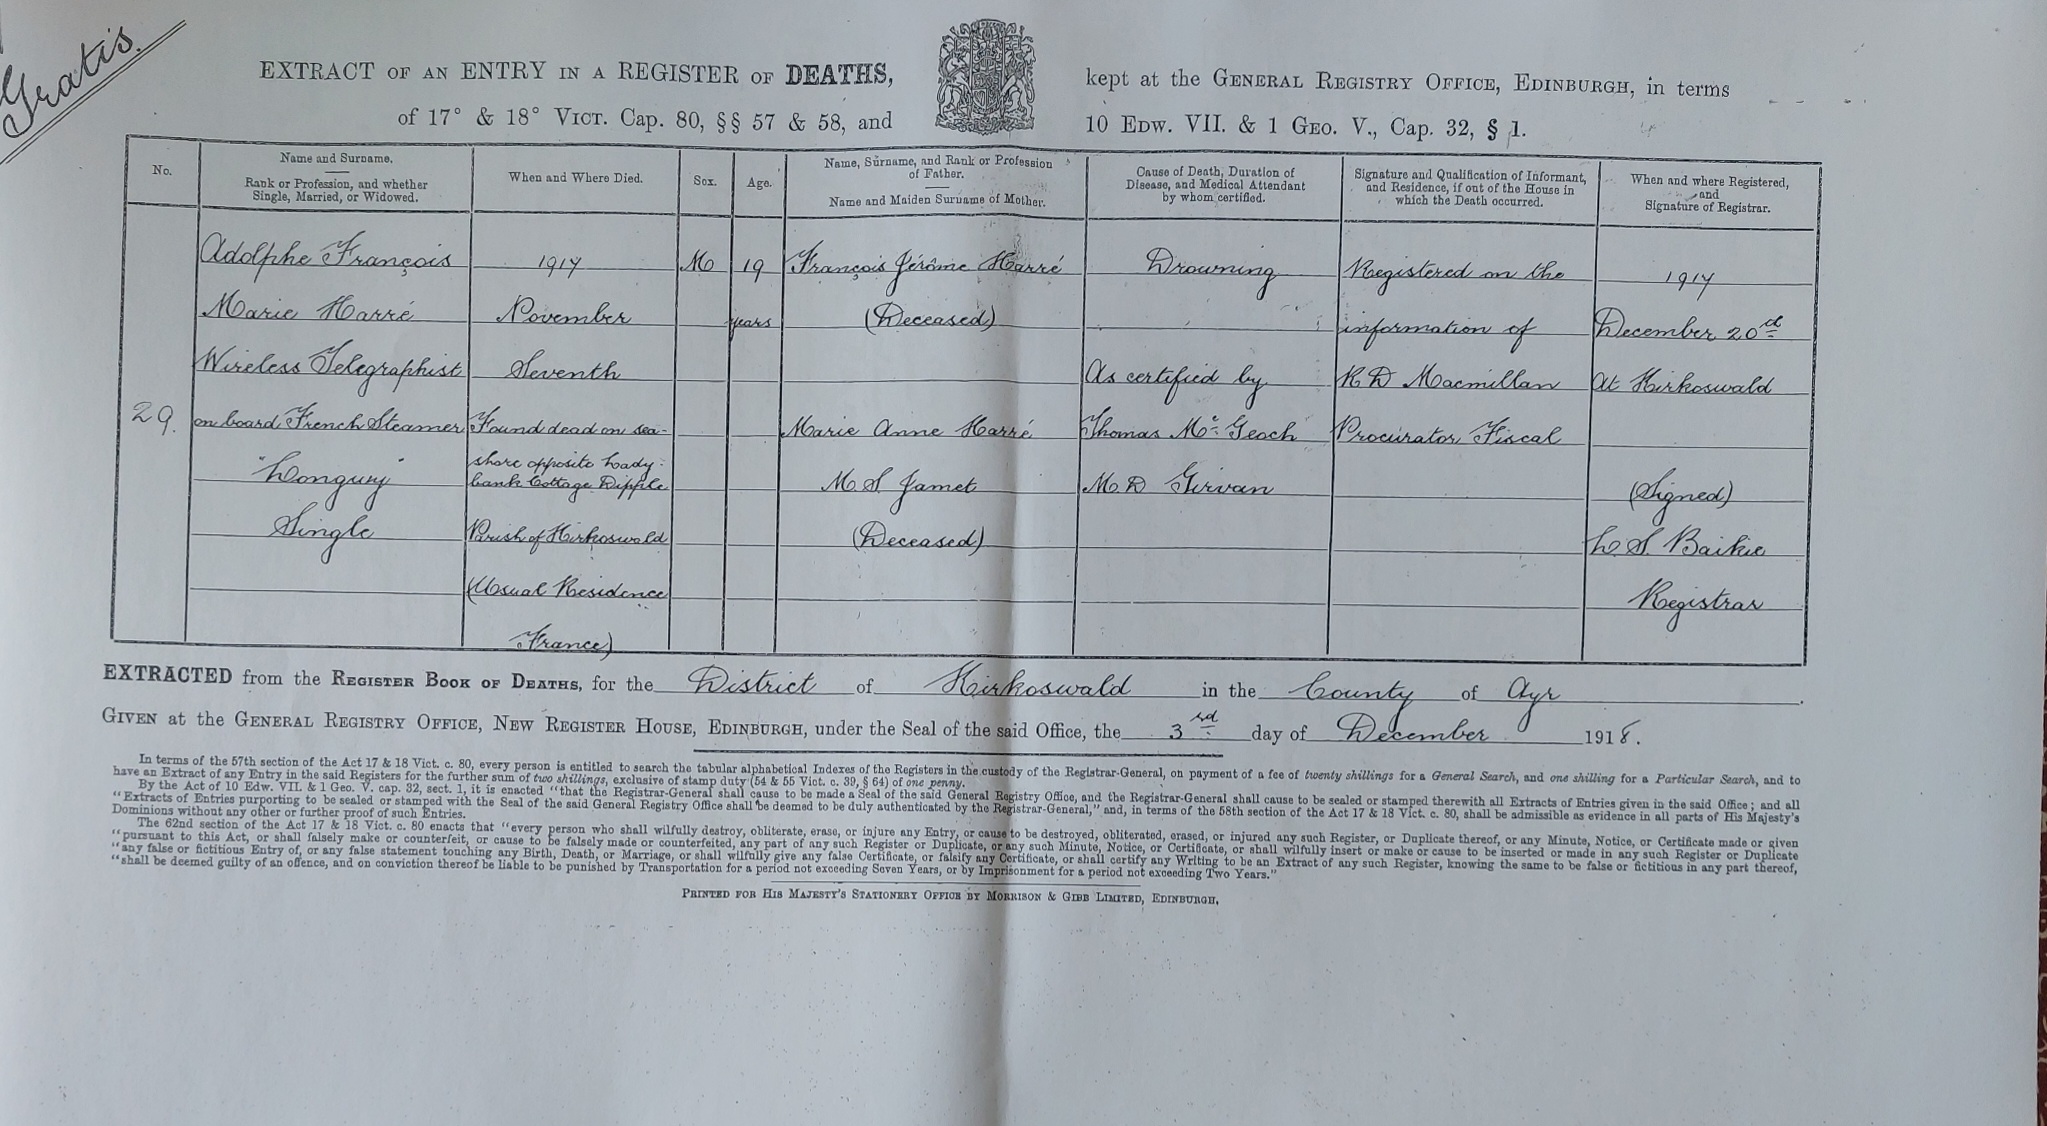 Gratis.
EXTRACT OF AN ENTRY IN A REGISTER OF DEATHS, kept at the GENERAL REGISTRY OFFICE, EDINBURGH, in terms
of 17° & 18° VICT. Cap. 80, §§ 57 & 58, and 10 EDW. VII. & 1 GEO. V., Cap. 32, § 1.
No.
Name and Surname.
Rank or Profession, and whether
Single, Married, or Widowed.
When and Where Died.
Sex.
Age.
Name, Surname, and Rank or Profession
of Father.
Name and Maiden Surname of Mother.
Cause of Death, Duration of
Disease, and Medical Attendant
by whom certified.
Signature and Qualification of Informant,
and Residence, if out of the House in
which the Death occurred.
When and where Registered,
and
Signature of Registrar.
29.
Adolphe François
Marie Harré
Wireless Telegraphist
on board French Steamer
"Longuny"
Single
1917
November
Seventh
Found dead on sea-
shore opposite Lady-
bank Cottage Dipple
Parish of Kirkoswald
(Usual Residence
France)
M
19
years
François Jérôme Harré
(Deceased)
Marie Anne Harré
M.S. Jamet
(Deceased)
Drowning
As certified by
Thomas Mc Geoch
M.D. Girvan
Registered on the
information of
Macmillan
Procurator Fiscal
1917
December 20th
At Kirkoswald
(Signed)
L S Baikie
Registrar
EXTRACTED from the REGISTER BOOK OF DEATHS, for the District of Kirkoswald in the County of Ayr.
GIVEN at the GENERAL REGISTRY OFFICE, NEW REGISTER HOUSE, EDINBURGH, under the Seal of the said Office, the 3rd day of December 1918.
In terms of the 57th section of the Act 17 & 18 Vict. c. 80, every person is entitled to search the tabular alphabetical Indexes of the Registers in the custody of the Registrar-General, on payment of a fee of twenty shillings for a General Search, and one shilling for a Particular Search, and to
have an Extract of any Entry in the said Registers for the further sum of two shillings, exclusive of stamp duty (54 & 55 Vict. c. 39, § 64) of one penny.
By the Act of 10 Edw. VII. & 1 Geo. V. cap. 32, sect. 1, it is enacted "that the Registrar-General shall cause to be made a Seal of the said General Registry Office, and the Registrar-General shall cause to be sealed or stamped therewith all Extracts of Entries given in the said Office; and all
"Extracts of Entries purporting to be sealed or stamped with the Seal of the said General Registry Office shall be deemed to be duly authenticated by the Registrar-General," and, in terms of the 58th section of the Act 17 & 18 Vict. c. 80, shall be admissible as evidence in all parts of His Majesty's
Dominions without any other or further proof of such Entries.
The 62nd section of the Act 17 & 18 Vict. c. 80 enacts that "every person who shall wilfully destroy, obliterate, erase, or injure any Entry, or cause to be destroyed, obliterated, erased, or injured any such Register, or Duplicate thereof, or any Minute, Notice, or Certificate made or given
"pursuant to this Act, or shall falsely make or counterfeit, or cause to be falsely made or counterfeited, any part of any such Register or Duplicate, or any such Minute, Notice, or Certificate, or shall wilfully insert or make or cause to be inserted or made in any such Register or Duplicate
"any false or fictitious Entry of, or any false statement touching any Birth, Death, or Marriage, or shall wilfully give any false Certificate, or falsify any Certificate, or shall certify any Writing to be an Extract of any such Register, knowing the same to be false or fictitious in any part thereof,
"shall be deemed guilty of an offence, and on conviction thereof be liable to be punished by Transportation for a period not exceeding Seven Years, or by Imprisonment for a period not exceeding Two Years."
PRINTED FOR HIS MAJESTY'S STATIONERY OFFICE BY MORRISON & GIBB LIMITED, EDINBURGH.